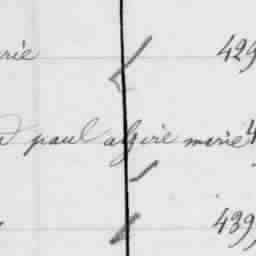 rie 429
d paul alzire marie 4
439